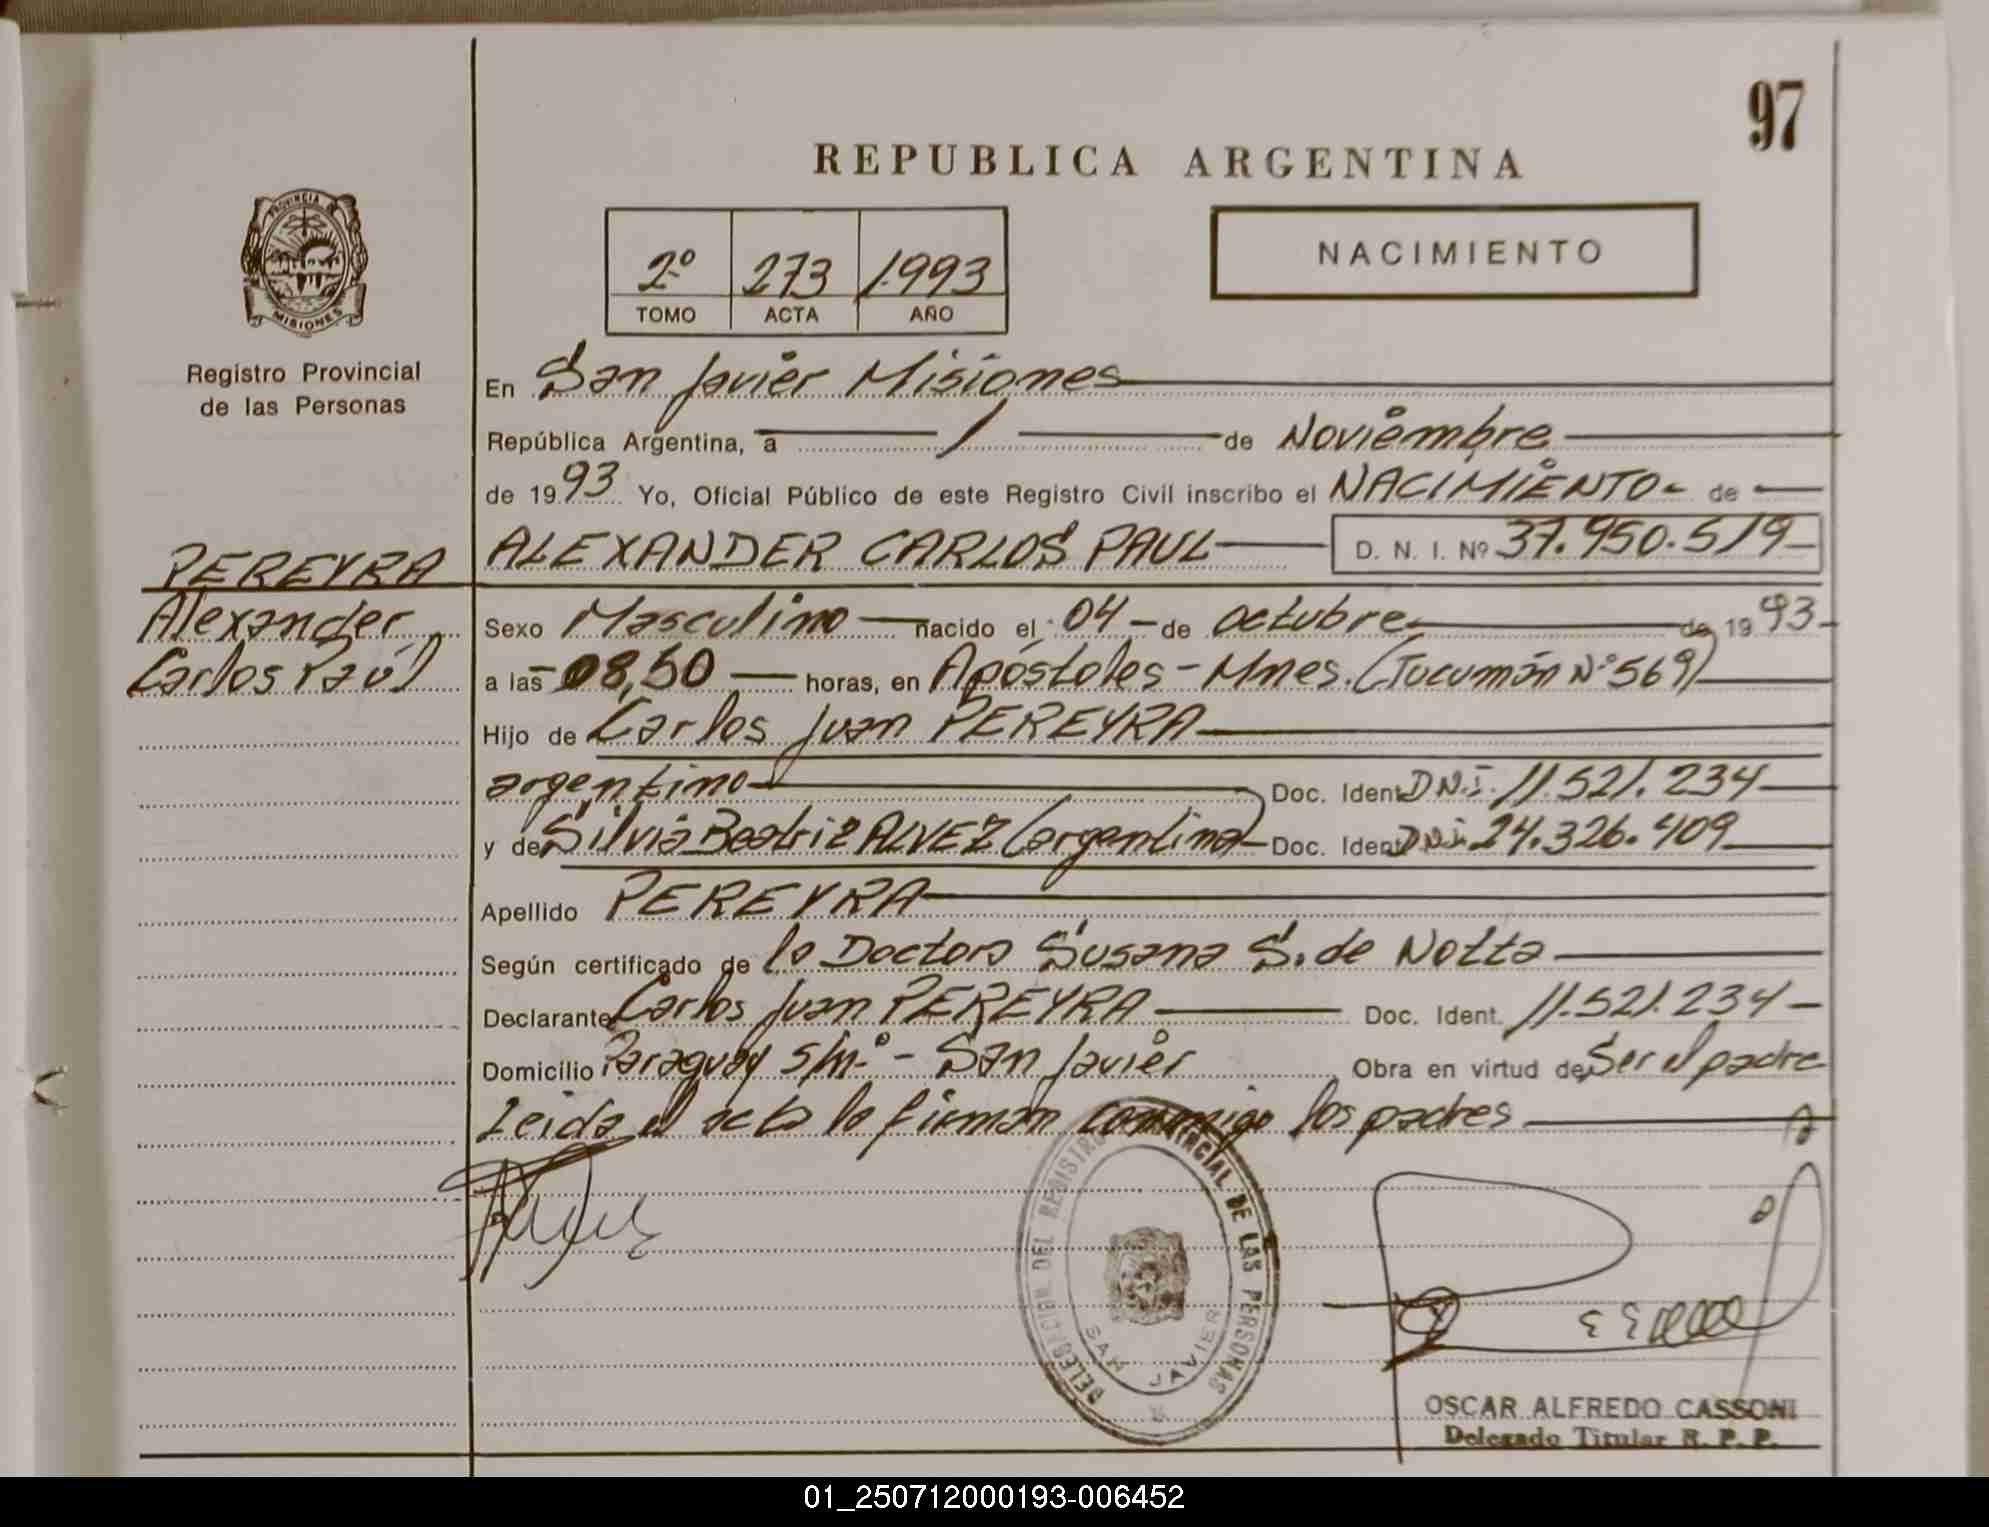 97
REPUBLICA ARGENTINA
PROVINCIA DE
MISIONES
Registro Provincial
de las Personas
2º 273 1.993
TOMO ACTA AÑO
NACIMIENTO
En San Javier Misiones
República Argentina, a / de Noviembre
de 1993 Yo, Oficial Público de este Registro Civil inscribo el NACIMIENTO- de
PEREYRA ALEXANDER CARLOS PAUL D. N. I. Nº 37.950.519
Alexander Sexo Masculino nacido el 04 - de octubre de 1993
Carlos Paúl a las 08,50 horas, en Apóstoles - Mnes. (Tucumán Nº 569)
Hijo de Carlos Juan PEREYRA
argentino Doc. Ident. D.N.I. 11.521.234
y de Silvia Beatriz ALVEZ (argentina) Doc. Ident. D.N.I. 24.326.409
Apellido PEREYRA
Según certificado de la Doctora Susana S. de Notta
Declarante Carlos Juan PEREYRA Doc. Ident. 11.521.234
Domicilio Paraguay s/nº - San Javier Obra en virtud de Ser el padre
Leida el acta la firman conmigo los padres
DELEGACION DEL REGISTRO PROVINCIAL DE LAS PERSONAS
SAN JAVIER
OSCAR ALFREDO CASSONI
Delegado Titular R. P. P.
01_250712000193-006452